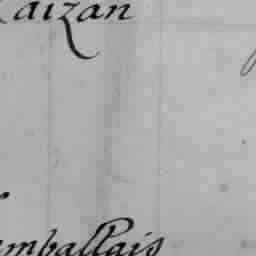 aizan
mballais